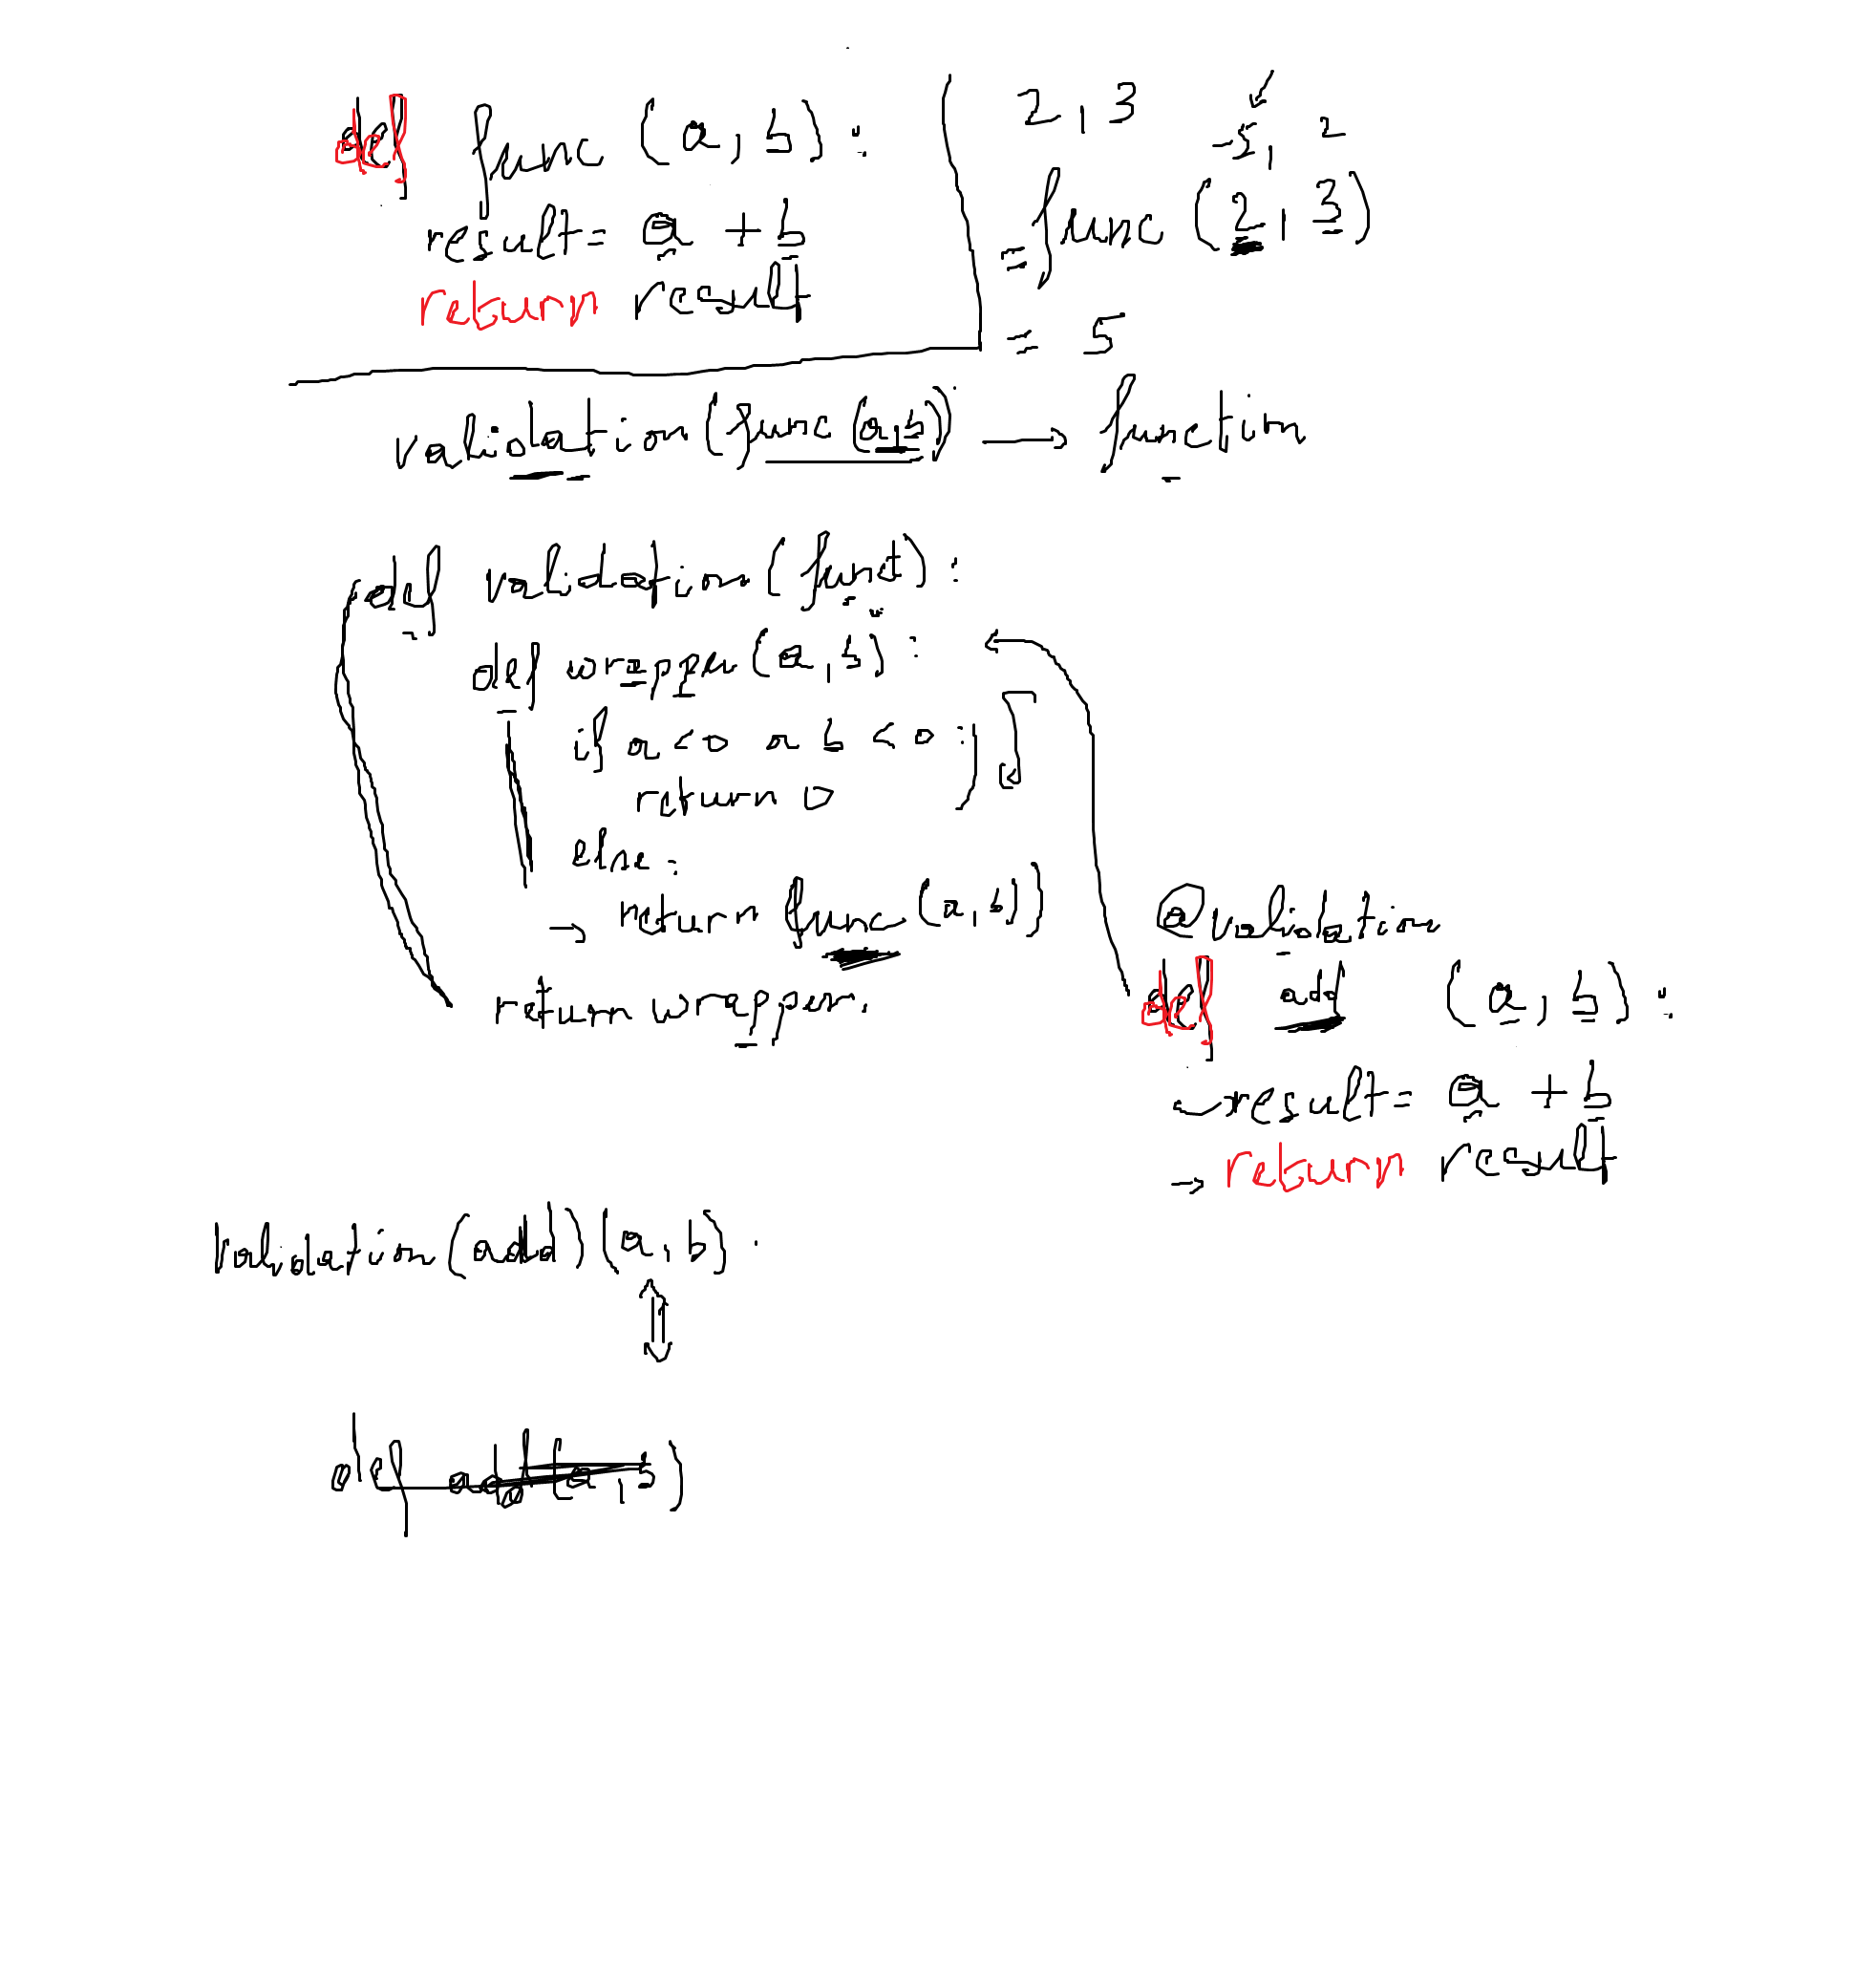 def func (a, b) :
result = a + b
return result
2, 3
-5, 2
= func (2, 3)
= 5
validation (func (a,b)) → function
def validation (funct) :
def wrapper (a, b) :
if a < 0 or b < 0 :
return 0
else :
→ return func (a, b))
return wrapper.
@validation
def add (a, b) :
→ result = a + b
→ return result
Validation (add) (a, b) .
def add (a, b)